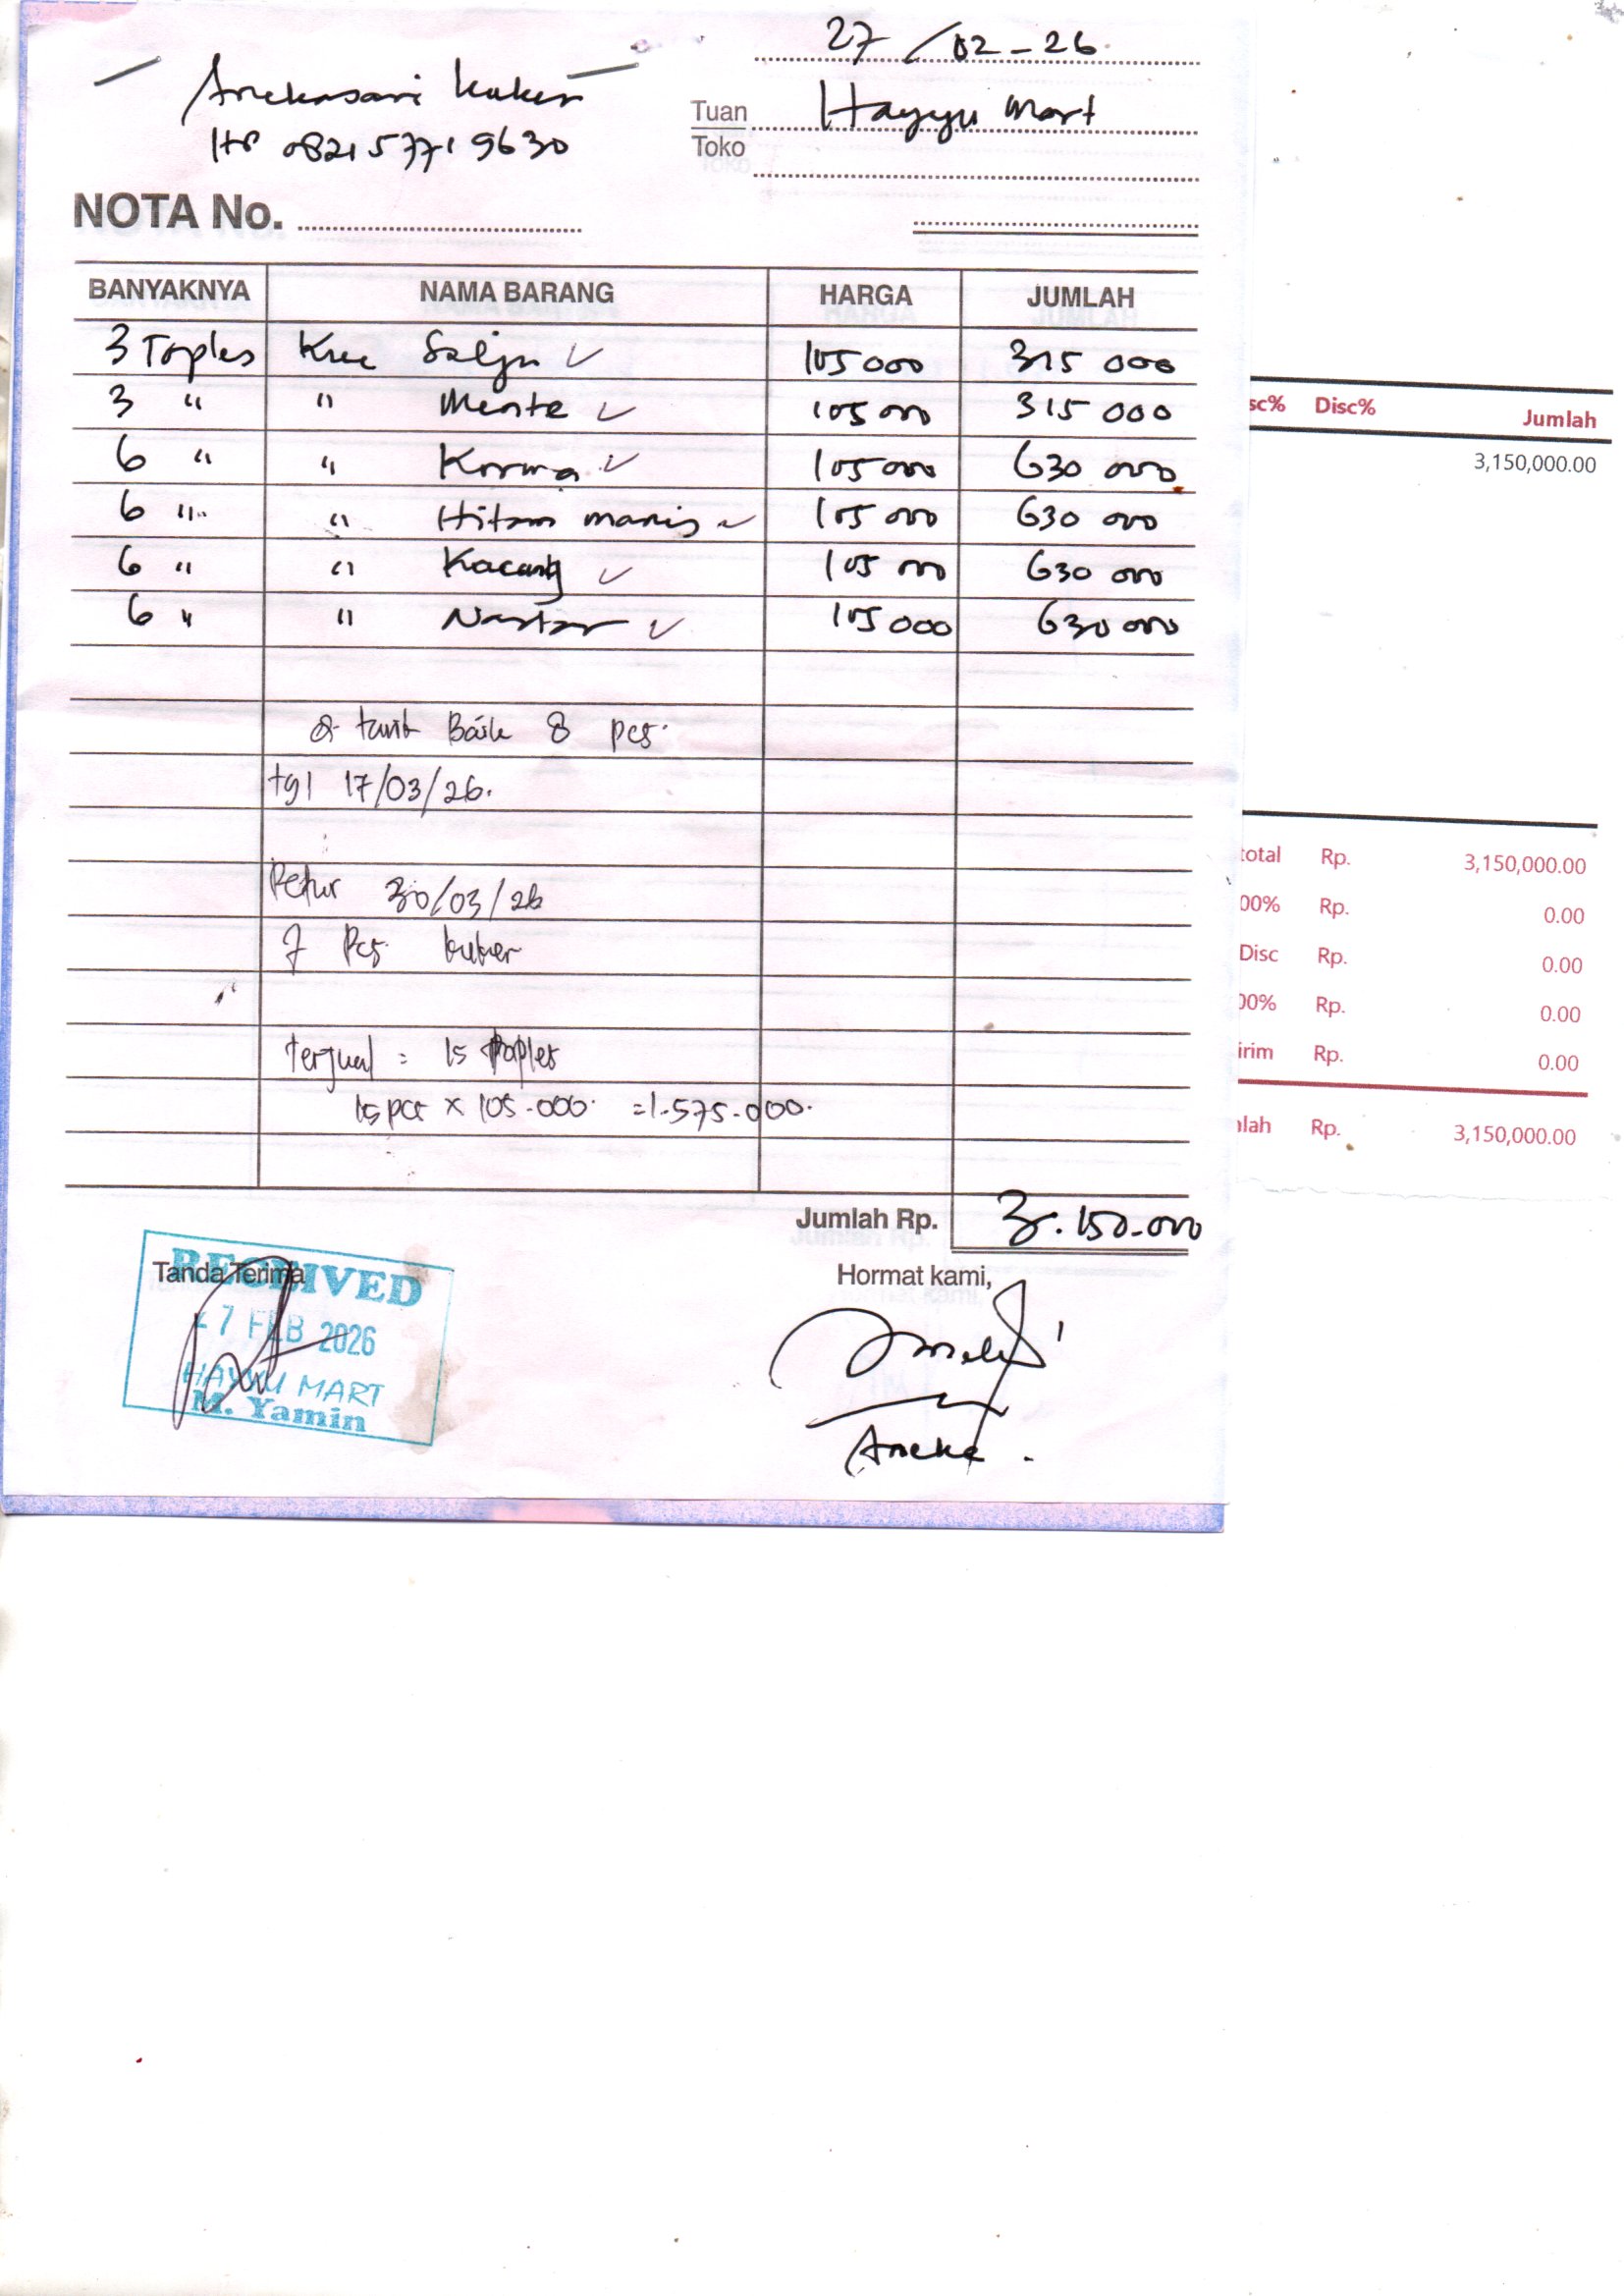 27/02-26
Anekasari kuker
HP 082157719630
Tuan
Toko
Hayyu Mart
NOTA No.
BANYAKNYA NAMA BARANG HARGA JUMLAH
3 Toples Kue Salju ✓ 105 000 315 000
3 " " Mente ✓ 105 000 315 000
6 " " Korma ✓ 105 000 630 000
6 " " Hitam manis ✓ 105 000 630 000
6 " " Kacang ✓ 105 000 630 000
6 " " Nastar ✓ 105 000 630 000
tarik Baik 8 pcs.
tgl 17/03/26.
Retur 30/03/26
7 Pcs kuker
terjual = 15 toples
15 pcs x 105.000. =1.575.000.
Jumlah Rp. 3.150.000
Tanda Terima
Hormat kami,
RECEIVED
27 FEB 2026
HAYYU MART
M. Yamin
Aneka.
sc% Disc% Jumlah
3,150,000.00
total Rp. 3,150,000.00
00% Rp. 0.00
Disc Rp. 0.00
00% Rp. 0.00
irim Rp. 0.00
lah Rp. 3,150,000.00